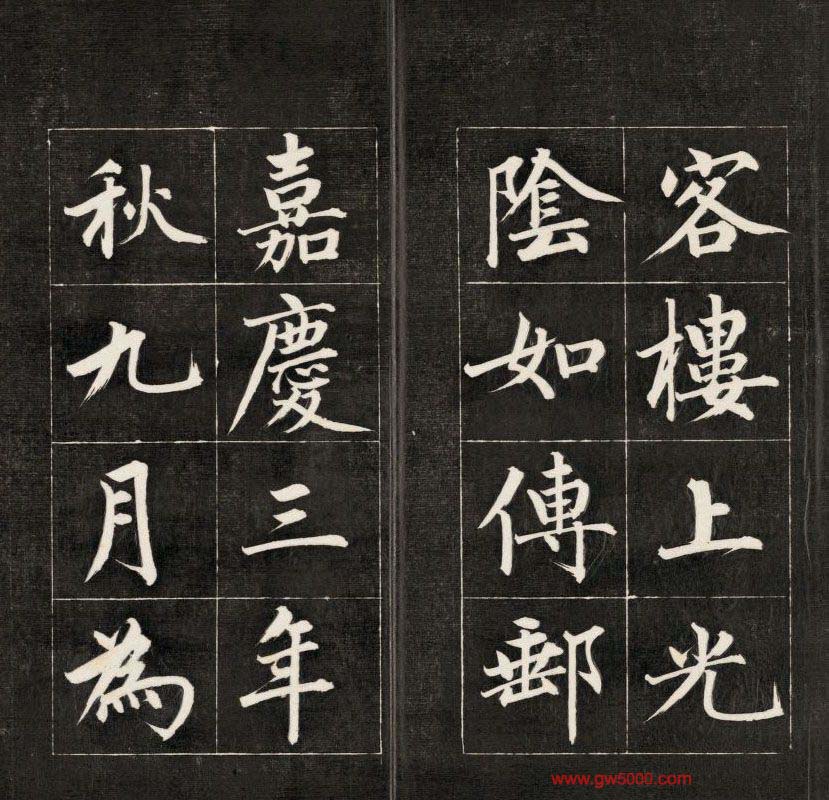 客樓上光
陰如傳郵
嘉慶三年
秋九月為
www.gw5000.com